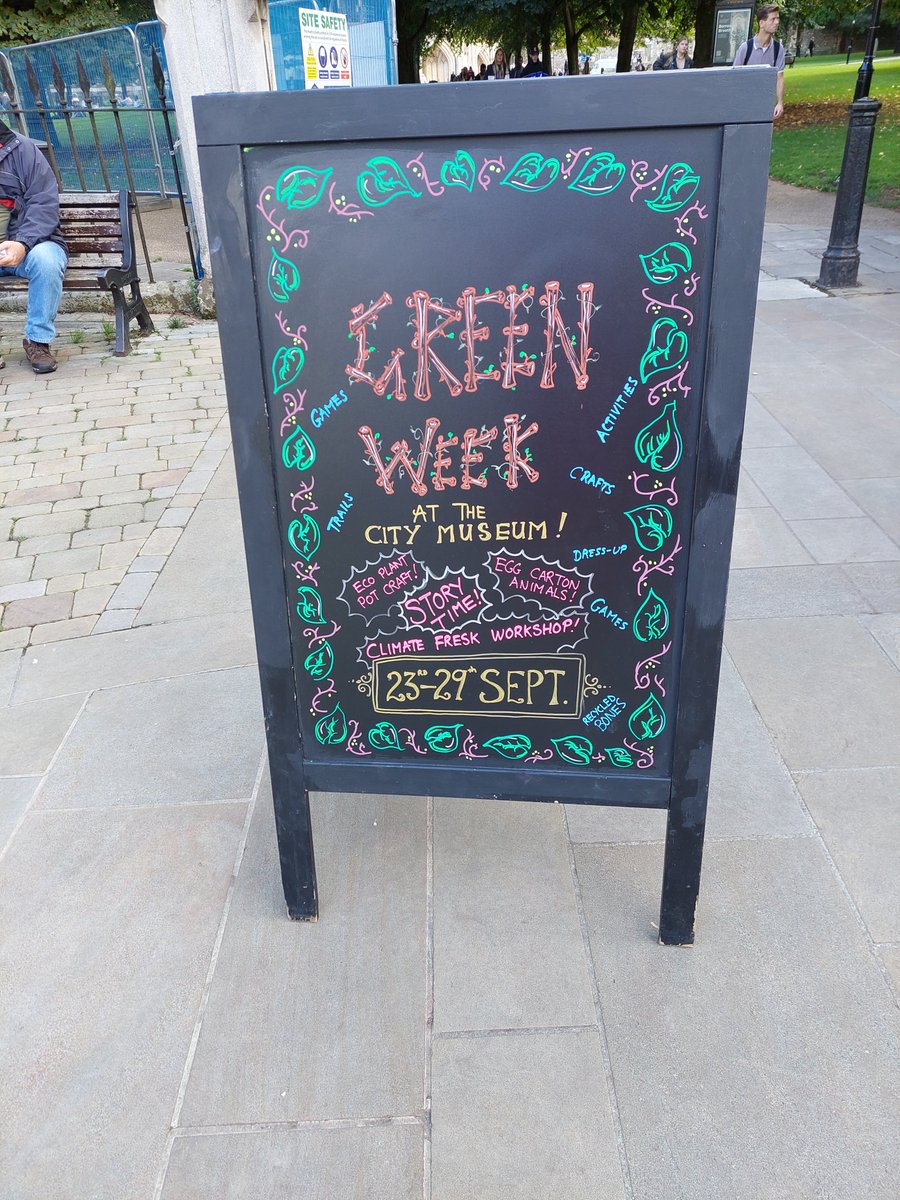 SITE SAFETY
GREEN
WEEK
AT THE
CITY MUSEUM!
GAMES
TRAILS
ACTIVITIES
CRAFTS
DRESS-UP
GAMES
RECYCLED
BONES
ECO PLANT
POT CRAFT!
STORY
TIME!
EGG CARTON
ANIMALS!
CLIMATE FRESK WORKSHOP!
23RD-29TH SEPT.